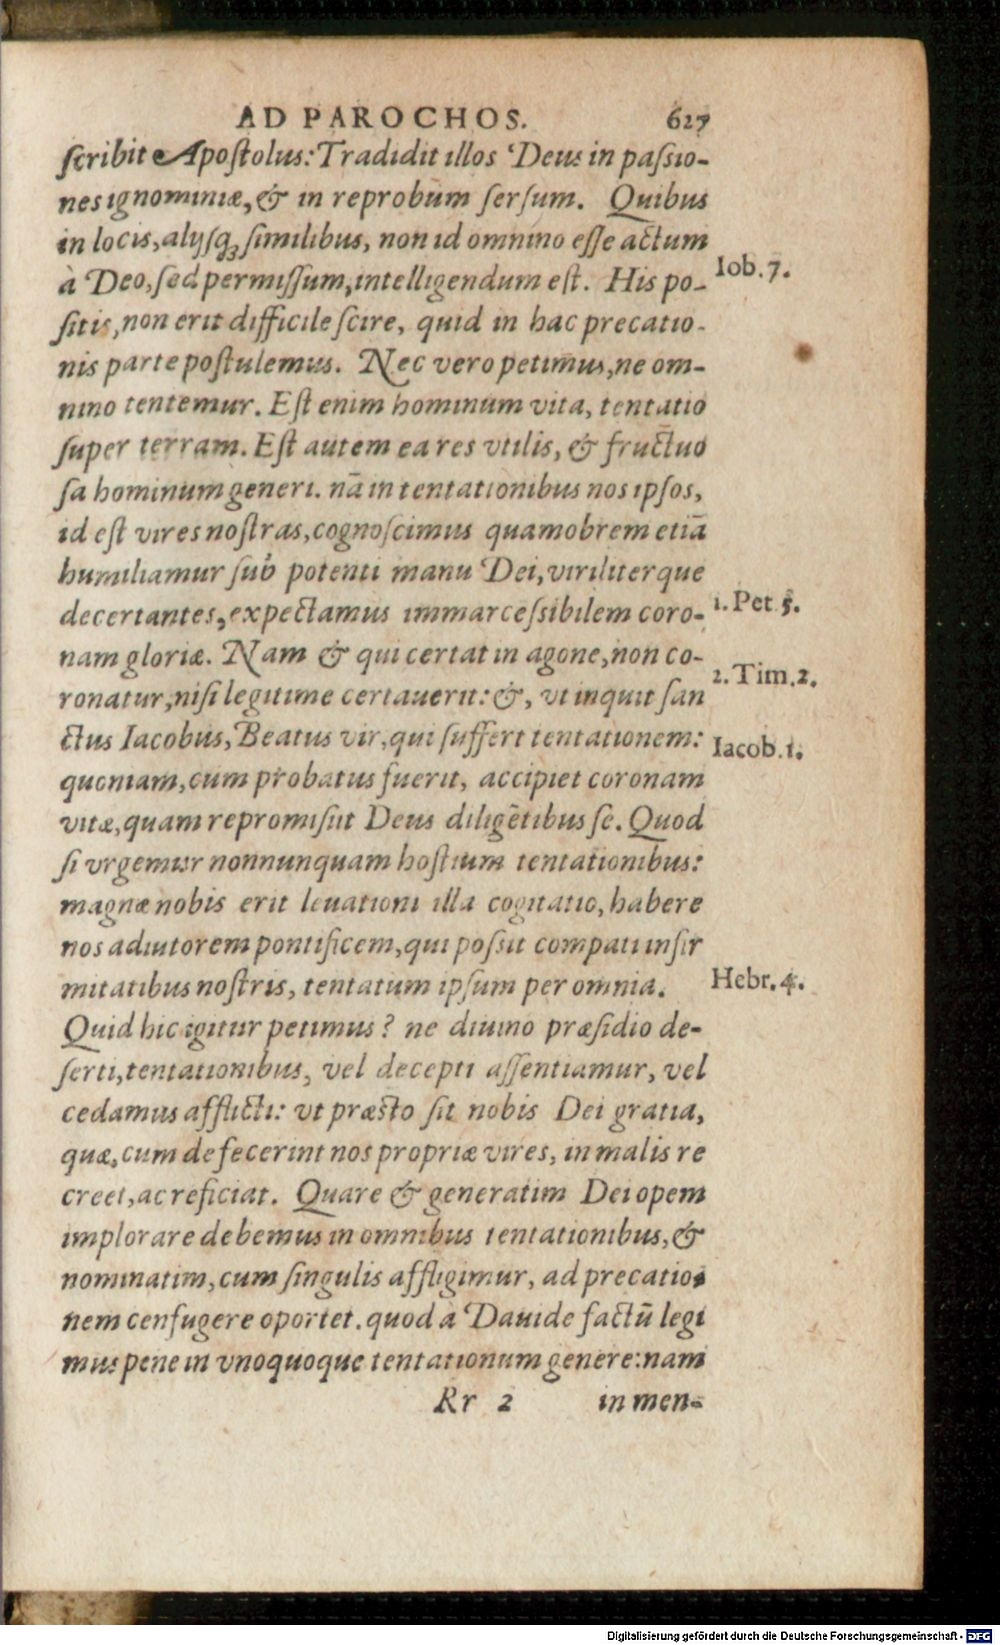 AD PAROCHOS. 627
scribit Apostolus: Tradidit illos Deus in passio-
nes ignominiæ, & in reprobum sersum. Quibus
in locis, alijsq́; similibus, non id omnino esse actum
à Deo, sed permissum, intelligendum est. His po-
Iob. 7.
sitis, non erit difficile scire, quid in hac precatio-
nis parte postulemus. Nec vero petimus, ne om-
nino tentemur. Est enim hominum vita, tentatio
super terram. Est autem ea res vtilis, & fructuo
sa hominum generi. nā in tentationibus nos ipsos,
id est vires nostras, cognoscimus quamobrem etiā
humiliamur sub potenti manu Dei, viriliterque
decertantes, expectamus immarcessibilem coro-
1. Pet. 5.
nam gloriæ. Nam & qui certat in agone, non co-
ronatur, nisi legitime certauerit: &, vt inquit san
2. Tim. 2.
ctus Iacobus, Beatus vir, qui suffert tentationem:
Iacob. 1.
quoniam, cum probatus fuerit, accipiet coronam
vitæ, quam repromisit Deus diligētibus se. Quod
si vrgemur nonnunquam hostium tentationibus:
magnæ nobis erit leuationi illa cogitatio, habere
nos adiutorem pontificem, qui possit compati infir
mitatibus nostris, tentatum ipsum per omnia.
Hebr. 4.
Quid hic igitur petimus? ne diuino præsidio de-
serti, tentationibus, vel decepti assentiamur, vel
cedamus afflicti: vt præsto sit nobis Dei gratia,
quæ, cum defecerint nos propriæ vires, in malis re
creet, ac reficiat. Quare & generatim Dei opem
implorare debemus in omnibus tentationibus, &
nominatim, cum singulis affligimur, ad precatio-
nem confugere oportet. quod à Dauide factū legi
mus pene in vnoquoque tentationum genere: nam
Rr 2 in men-
Digitalisierung gefördert durch die Deutsche Forschungsgemeinschaft - DFG